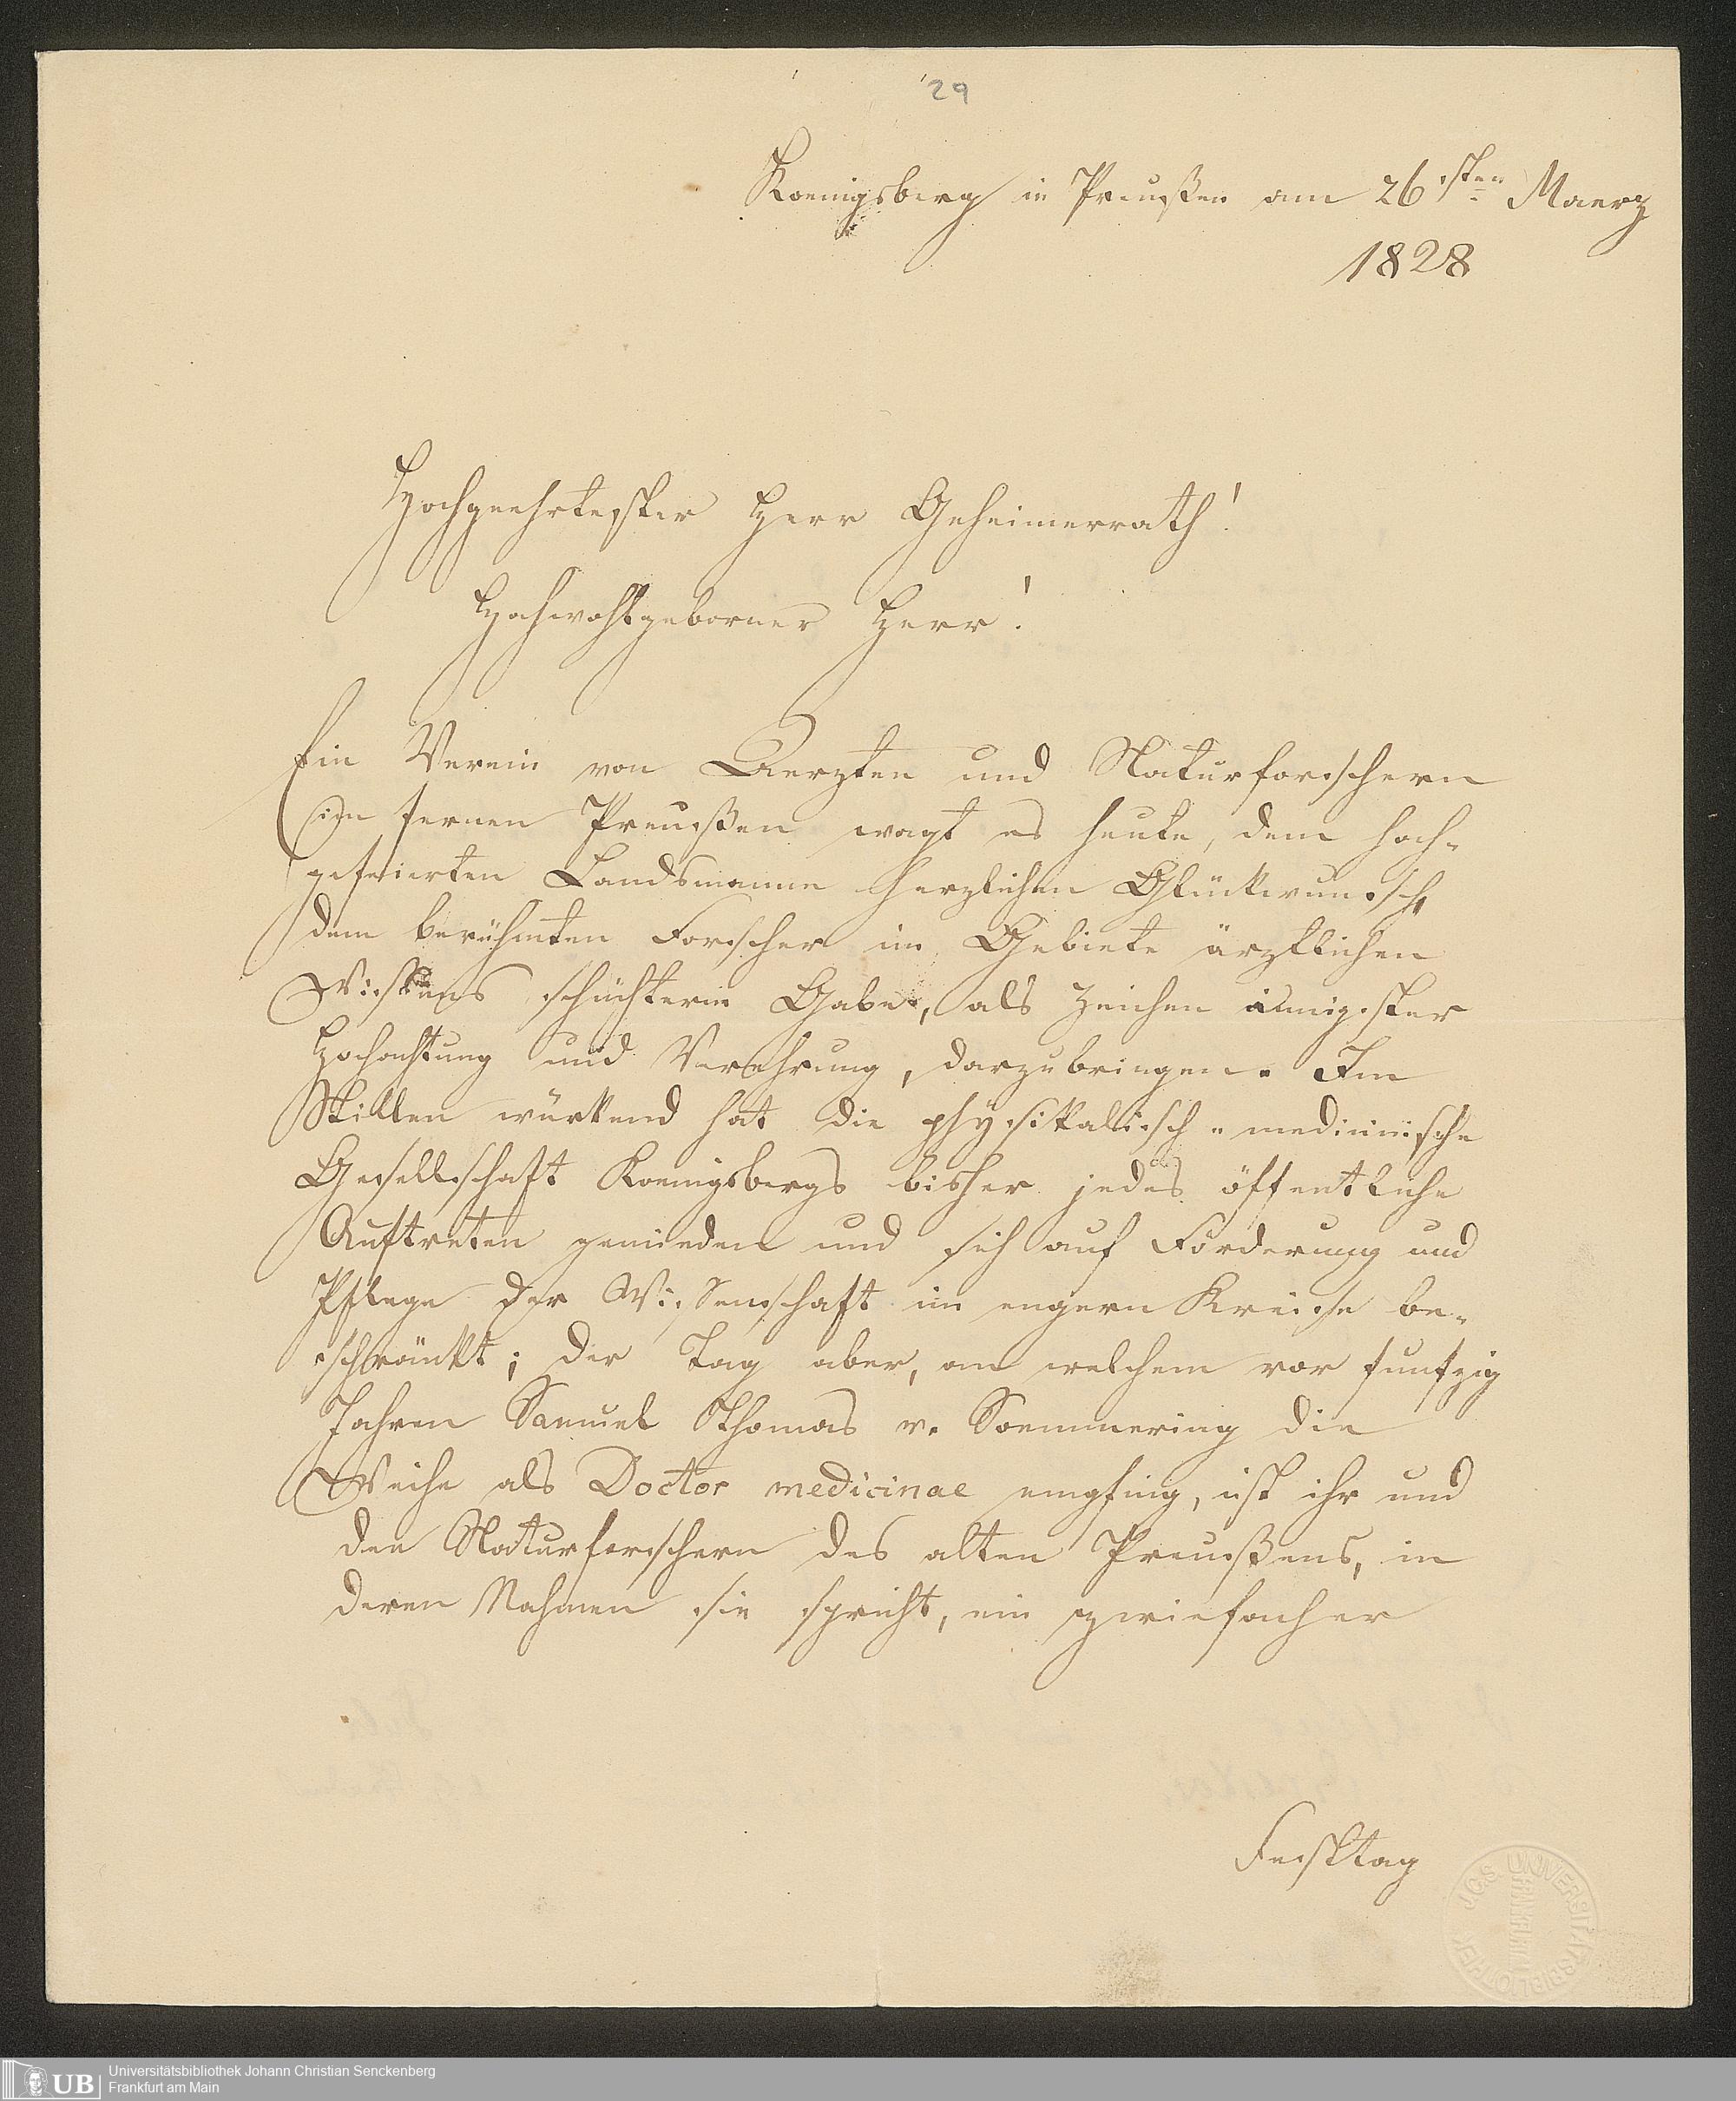 29
Koenigsberg in Preußen am 26sten Maerz
1828
Hochgeehrtester Herr Geheimerrath!
Hochwohlgeborner Herr!
Ein Verein von Aerzten und Naturforschern
im fernen Preußen wagt es heute, dem hoch-
gefeierten Landsmanne herzlichen Glückwunsch,
dem berühmten Forscher im Gebiete ärztlichen
Wißens schüchterne Gabe, als Zeichen innigster
Hochachtung und Verehrung, darzubringen. Im
Stillen würkend hat die physikalisch-medicinische
Gesellschaft Koenigsbergs bisher jedes öffentliche
Auftreten gemieden und sich auf Förderung und
Pflege der Wissenschaft im engern Kreise be-
schränkt; der Tag aber, an welchem vor funfzig
Jahren Samuel Thomas v. Soemmering die
Weihe als Doctor medicinae empfing, ist ihr und
den Naturforschern des alten Preußens, in
deren Nahmen sie spricht, ein zwiefacher
Festtag
J.C.S. UNIVERSITÄTSBIBLIOTHEK
FRANKFURT
UB
Universitätsbibliothek Johann Christian Senckenberg
Frankfurt am Main